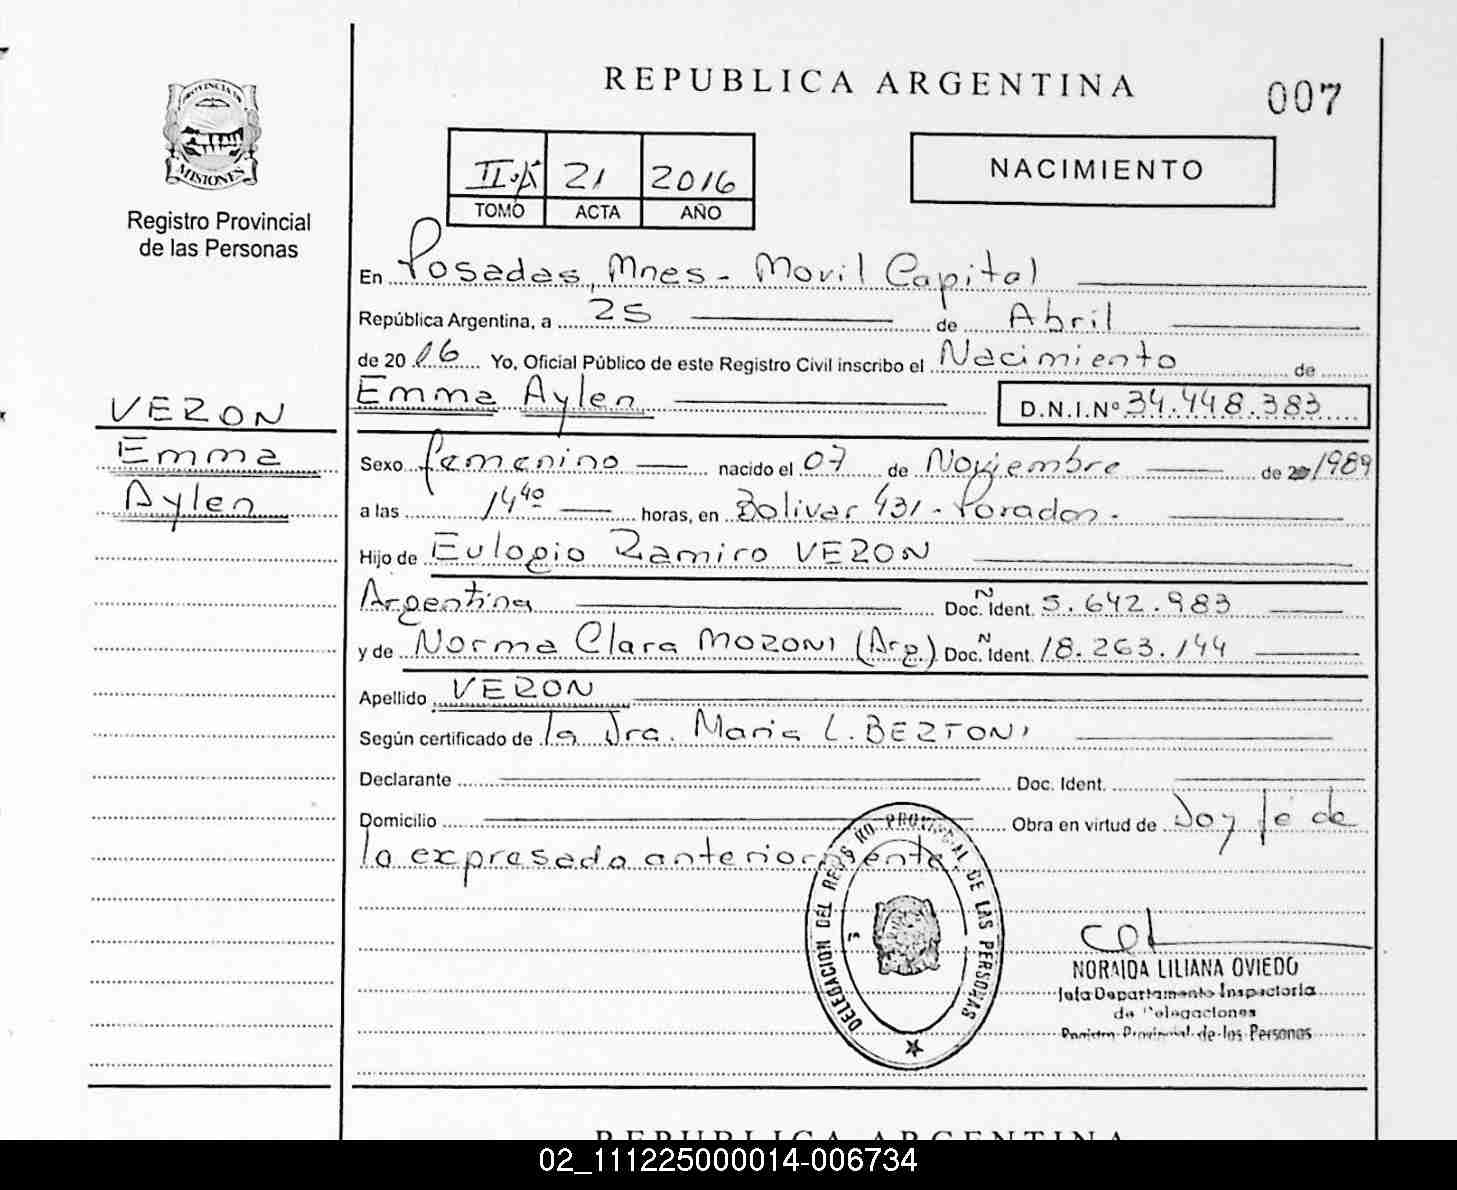 REPUBLICA ARGENTINA
007
PROVINCIA DE
MISIONES
Registro Provincial
de las Personas
II·A 21 2016
TOMO ACTA AÑO
NACIMIENTO
En Posadas, Mnes - Movil Capital
República Argentina, a 25 de Abril
de 20 16 Yo, Oficial Público de este Registro Civil inscribo el Nacimiento de
Emma Aylen D.N.I.Nº 34.448.383
VERON
Emma
Aylen
Sexo femenino nacido el 07 de Noviembre de 1989
a las 14 40 horas, en Bolivar 431 - Posadas.
Hijo de Eulogio Ramiro VERON
Argentina Doc. Ident. Nº 5.642.983
y de Norma Clara MOZONI (Arg) Doc. Ident. Nº 18.263.144
Apellido VERON
Según certificado de la Dra. Maria L. BERTONI
Declarante Doc. Ident.
Domicilio Obra en virtud de Doy fé de
lo expresado anteriormente.
DELEGACION DEL REGISTRO PROVINCIAL DE LAS PERSONAS
NORAIDA LILIANA OVIEDO
Jefa Departamento Inspectoria
de Delegaciones
Registro Provincial de las Personas
REPUBLICA ARGENTINA
02_111225000014-006734